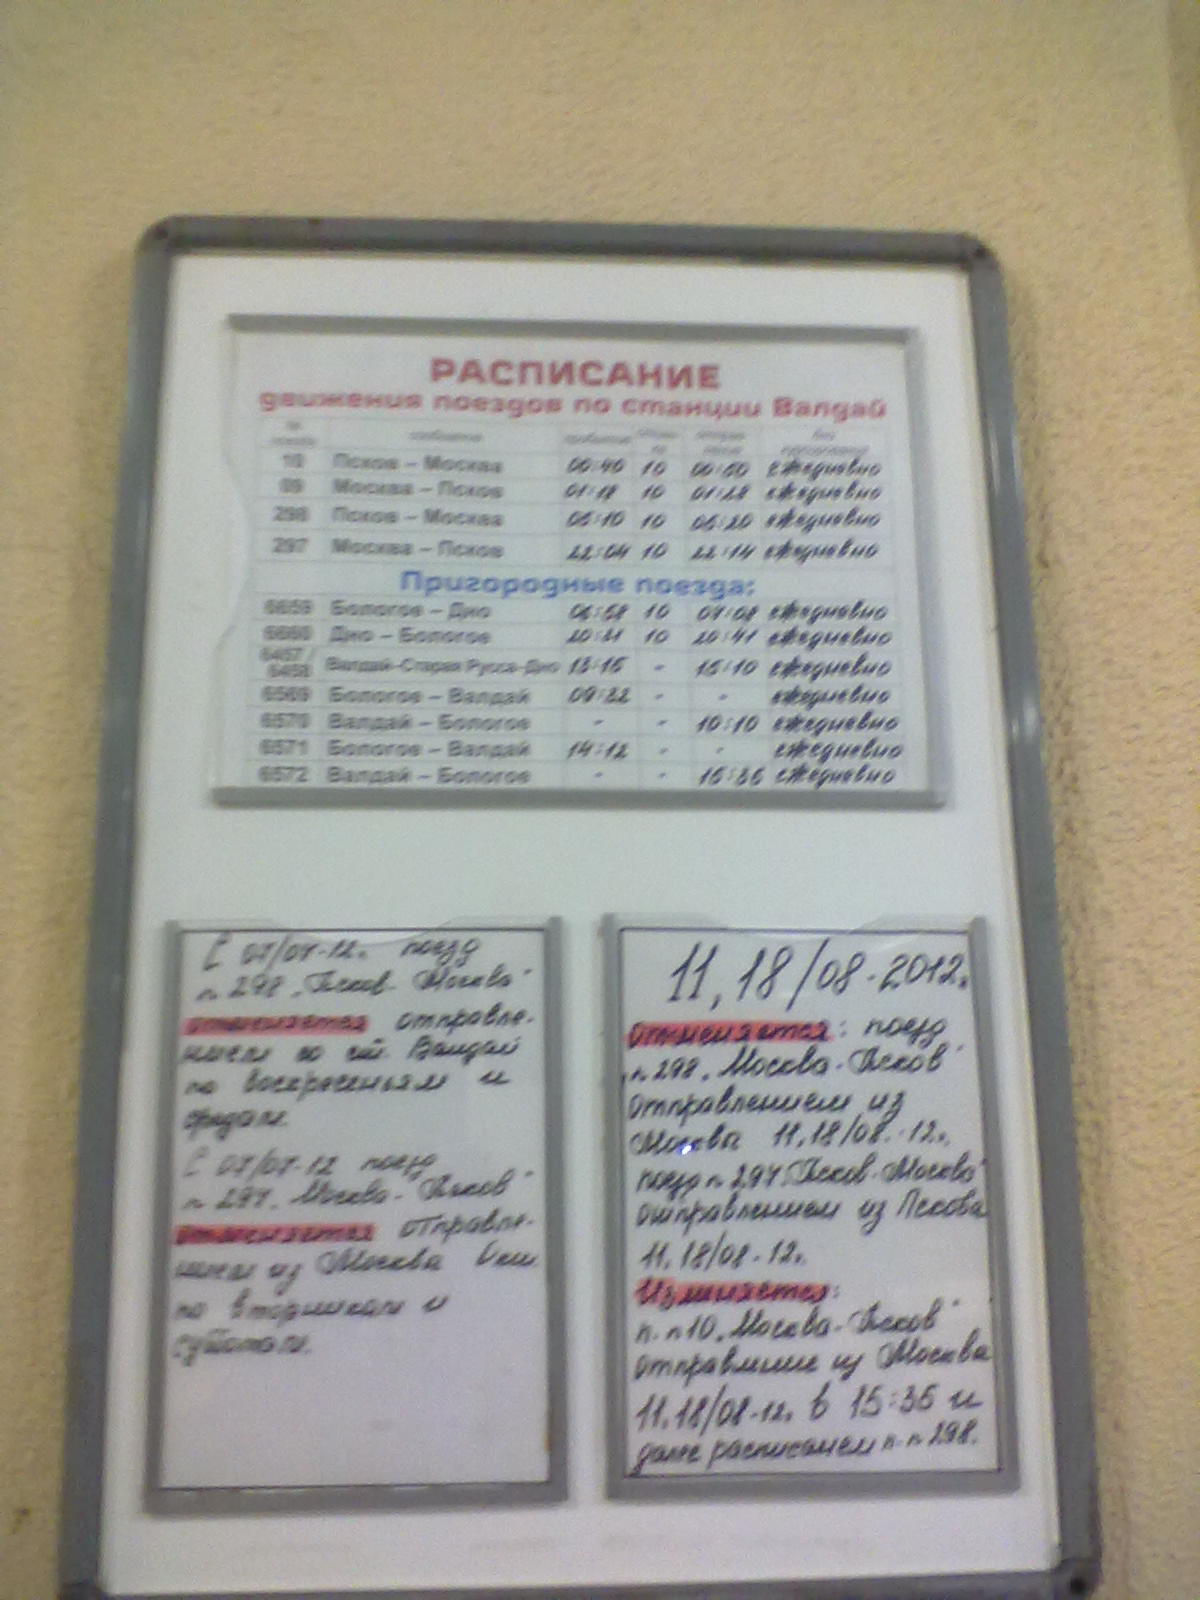 РАСПИСАНИЕ
движения поездов по станции Валдай
№ поезда сообщение прибытие
10 Псков – Москва 00:40 10 00:50 ежедневно
Москва – Псков 01:18 10 01:28 ежедневно
298 Псков – Москва 05:10 10 05:20 ежедневно
297 Москва – Псков 22:04 10 22:14 ежедневно
Пригородные поезда:
6659 Бологое – Дно 06:58 10 07:08 ежедневно
6660 Дно – Бологое 20:31 10 20:41 ежедневно
6457 /
6458 Валдай-Старая Русса-Дно 13:15 - 15:10 ежедневно
6569 Бологое – Валдай 09:22 - - ежедневно
6570 Валдай – Бологое - - 10:10 ежедневно
6571 Бологое – Валдай 14:12 - - ежедневно
6572 Валдай – Бологое - - 15:35 ежедневно
С 07/07-12г. поезд
п. 298 „Псков - Москва"
отменяется отправле-
нием со ст. Валдай
по воскресеньям и
средам.
С 07/07-12 поезд
п. 297 „Москва - Псков"
отменяется отправле-
нием из Москва
по вторникам и
субботам.
11, 18/08-2012г.
Отменяется: поезд
п. 298 „Москва - Псков"
отправлением из
Москва 11,18/08.-12г.
поезд п 297 „Псков-Москва"
отправлением из Пскова
11, 18/08-12г.
Изменяется:
п. п 10 „Москва - Псков"
отправление из Москва
11,18/08-12г. в 15:35 и
далее расписанием п. п 298.